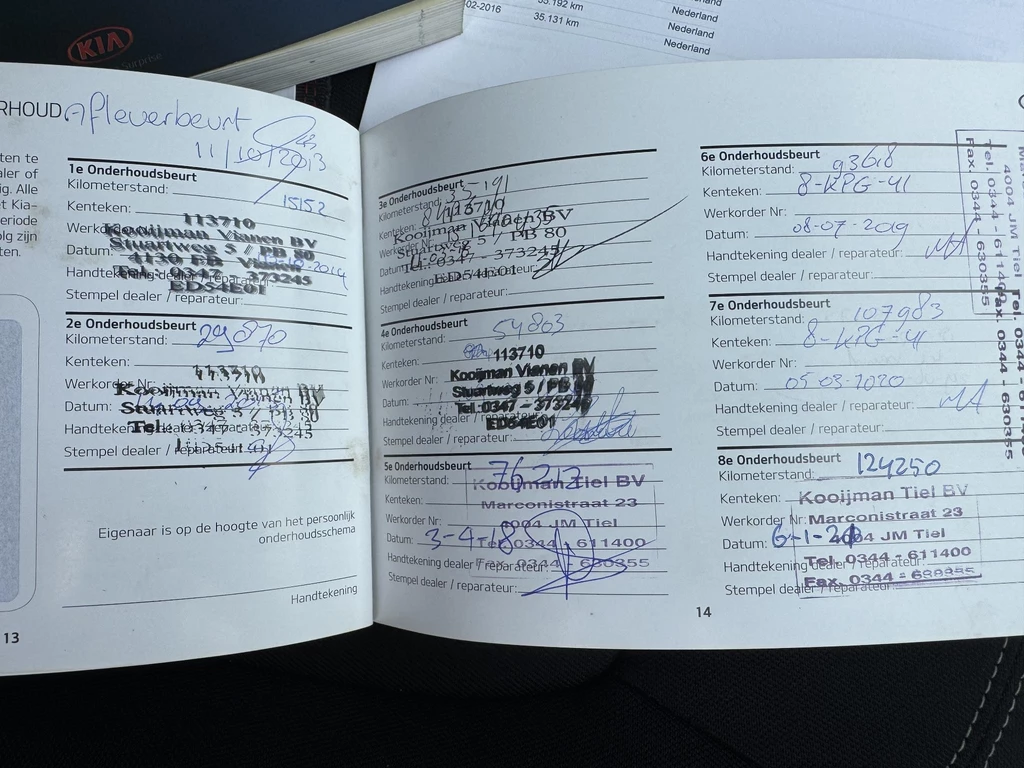 KIA
02-2016
35.192 km
35.131 km
Nederland
Nederland
Nederland
RHOUD Afleverbeurt
11/10/2013
ten te
aler of
ig. Alle
et Kia-
eriode
olg zijn
ten.
1e Onderhoudsbeurt
Kilometerstand: 15152
Kenteken:
113710
Kooijman Vianen BV
Stuartweg 5 / PB 80
Datum:
4130 EB Vianen
Handtekening dealer / reparateur:
Tel.: 0347 - 373245
ED54E01
Stempel dealer / reparateur:
2e Onderhoudsbeurt
Kilometerstand: 29870
Kenteken:
Werkorder Nr:
Kooijman Vianen BV
Datum:
Stuartweg 5 / PB 80
Handtekening dealer / reparateur:
Tel.: 0347 - 373245
Stempel dealer / reparateur:
Eigenaar is op de hoogte van het persoonlijk
onderhoudsschema
Handtekening
13
3e Onderhoudsbeurt
Kilometerstand:
113710
Kenteken:
Kooijman Vianen BV
Stuartweg 5 / PB 80
Datum:
Tel.: 0347 - 373245
Handtekening dealer / reparateur:
ED54E01
Stempel dealer / reparateur:
4e Onderhoudsbeurt
Kilometerstand: 54803
Kenteken:
113710
Kooijman Vianen BV
Werkorder Nr:
Stuartweg 5 / PB 80
Datum:
Tel.: 0347 - 373245
Handtekening dealer / reparateur:
ED54E01
Stempel dealer / reparateur:
5e Onderhoudsbeurt
Kilometerstand: 76212
Kooijman Tiel BV
Kenteken:
Marconistraat 23
Werkorder Nr:
4004 JM Tiel
Datum: 3-4-18
Tel. 0344 - 611400
Handtekening dealer / reparateur:
Fax. 0344 - 630355
Stempel dealer / reparateur:
14
6e Onderhoudsbeurt
Kilometerstand: 93618
Kenteken: 8-KPG-41
Werkorder Nr:
Datum: 08-07-2019
Handtekening dealer / reparateur:
Stempel dealer / reparateur:
4004 JM Tiel
Tel. 0344 - 611400
Fax. 0344 - 630355
7e Onderhoudsbeurt
Kilometerstand: 107983
Kenteken: 8-KPG-41
Werkorder Nr:
Datum: 05-03-2020
Handtekening dealer / reparateur:
Stempel dealer / reparateur:
Fax. 0344 - 630355
8e Onderhoudsbeurt
Kilometerstand: 124250
Kenteken:
Kooijman Tiel BV
Werkorder Nr:
Marconistraat 23
Datum:
4004 JM Tiel
Tel. 0344 - 611400
Handtekening dealer / reparateur:
Fax. 0344 - 630355
Stempel dealer / reparateur: